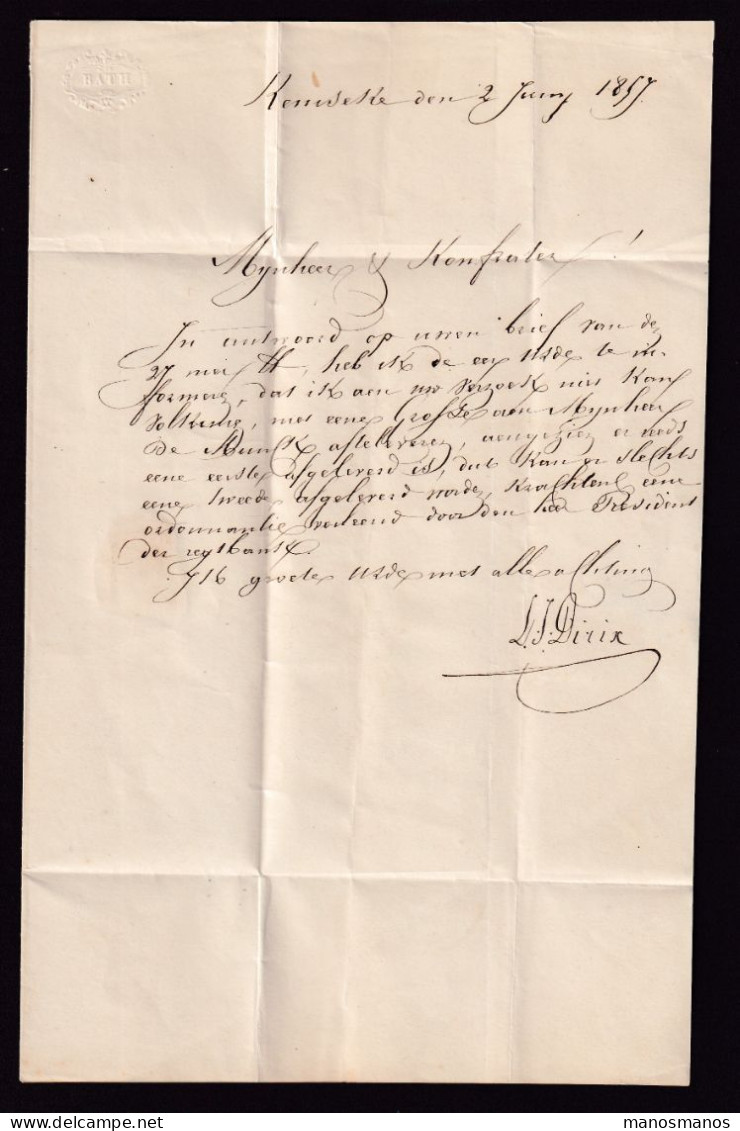 BATH
Kemseke den 2 Juny 1857.
Mynheer & Konfrater !
In antwoord op uwen brief van den
27 mei ll, heb ik de eer UEde te in-
formeren, dat ik aen uw verzoek niet kan
voldoen, met eene Grosse aen Mynheer
De Munck afteleveren, aengezien er reeds
eene eerste afgeleverd is, dat kan er slechts
eene tweede afgeleverd worden, krachtens eene
ordonnantie verleend door den heer President
der regtbank.
Ik groete UEde met alle achting
L.J. Dirix
manosmanos